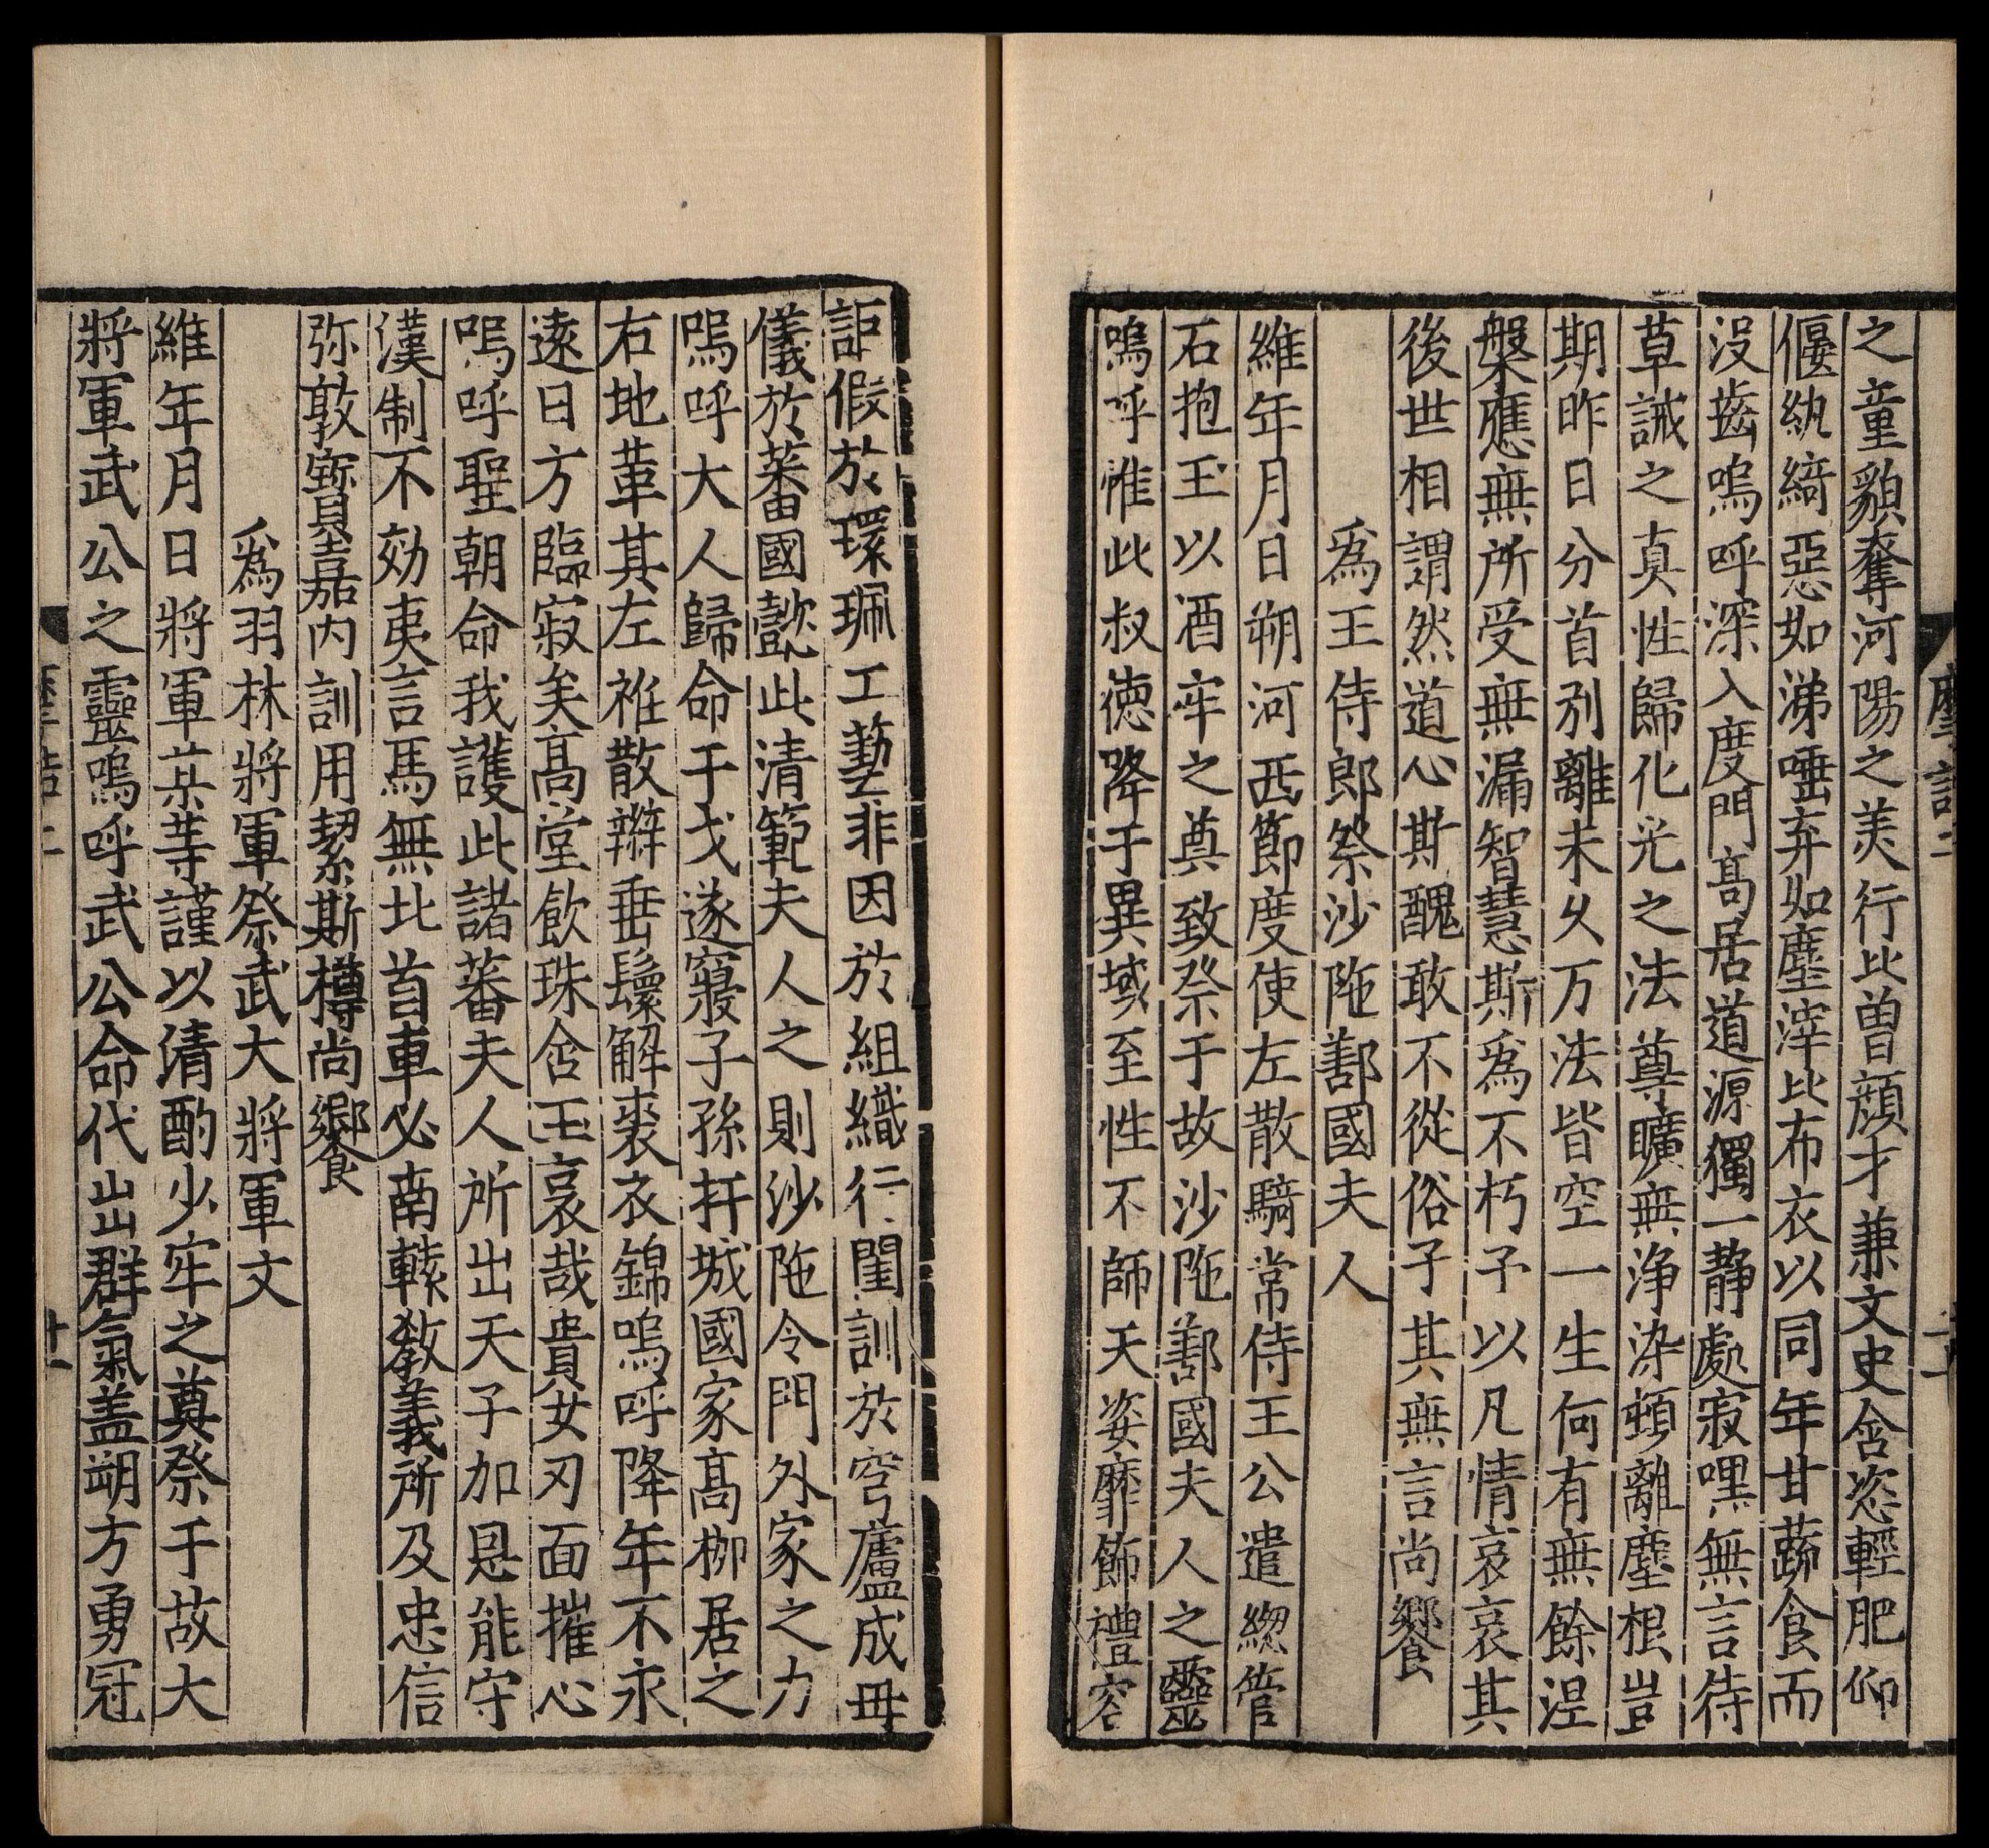 之童貌奪河陽之美行比曾顔才兼文史含恣輕肥仰
偃紈綺惡如涕唾弃如塵滓比布衣以同年甘蔬食而
没齒嗚呼深入度門髙居道源獨一静處寂嘿無言待
草誡之真性歸化光之法尊曠無浄染頓離塵根豈
期昨日分首别離未乆万法皆空一生何有無餘涅
槃應無所受無漏智慧斯爲不朽予以凡情哀哀其
後世相謂然道心斯醜敢不從俗子其無言尚饗
爲王侍郎祭沙陁鄯國夫人
維年月日朔河西節度使左散騎常侍王公遣緫管
石抱玉以酒牢之奠致祭于故沙陁鄯國夫人之靈
嗚呼惟此叔德降于異域至性不師天姿靡飾禮容
詎假於環珮工藝非因於組織行閨訓於穹廬成母
儀於蕃國懿此清範夫人之則沙陁令門外家之力
嗚呼大人歸命于戈遂寢子孫扞城國家髙栁居之
右地革其左衽散辮垂鬟解裘衣錦嗚呼降年不永
逺日方臨寂矣髙堂飲珠含玉哀哉貴女刃面摧心
嗚呼聖朝命我護此諸蕃夫人所出天子加恩能守
漢制不効夷言馬無北首車必南轅教義所及忠信
弥敦寳嘉内訓用絜斯樽尚饗
爲羽林將軍祭武大將軍文
維年月日將軍某等謹以清酌少牢之奠祭于故大
將軍武公之靈嗚呼武公命代出群氣盖朔方勇冠